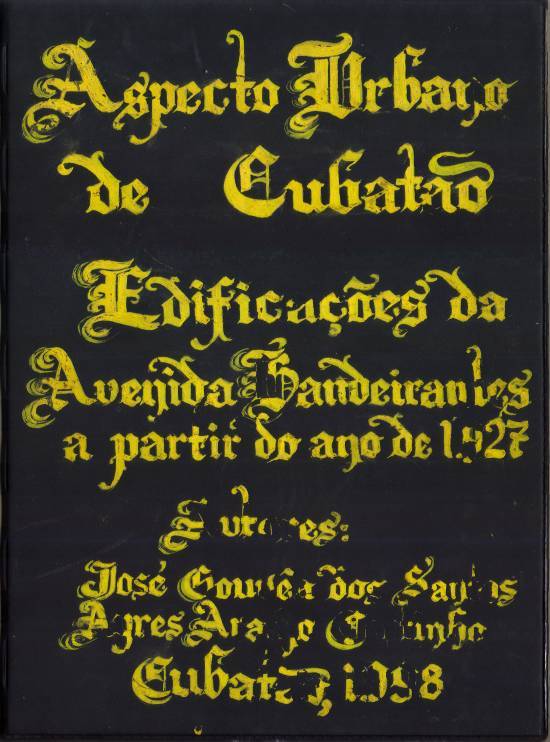 Aspecto Urbano
de Cubatão
Edificações da
Avenida Bandeirantes
a partir do ano de 1.927
Autores:
José dos Santos
Ayres
Cubatão, 1.998